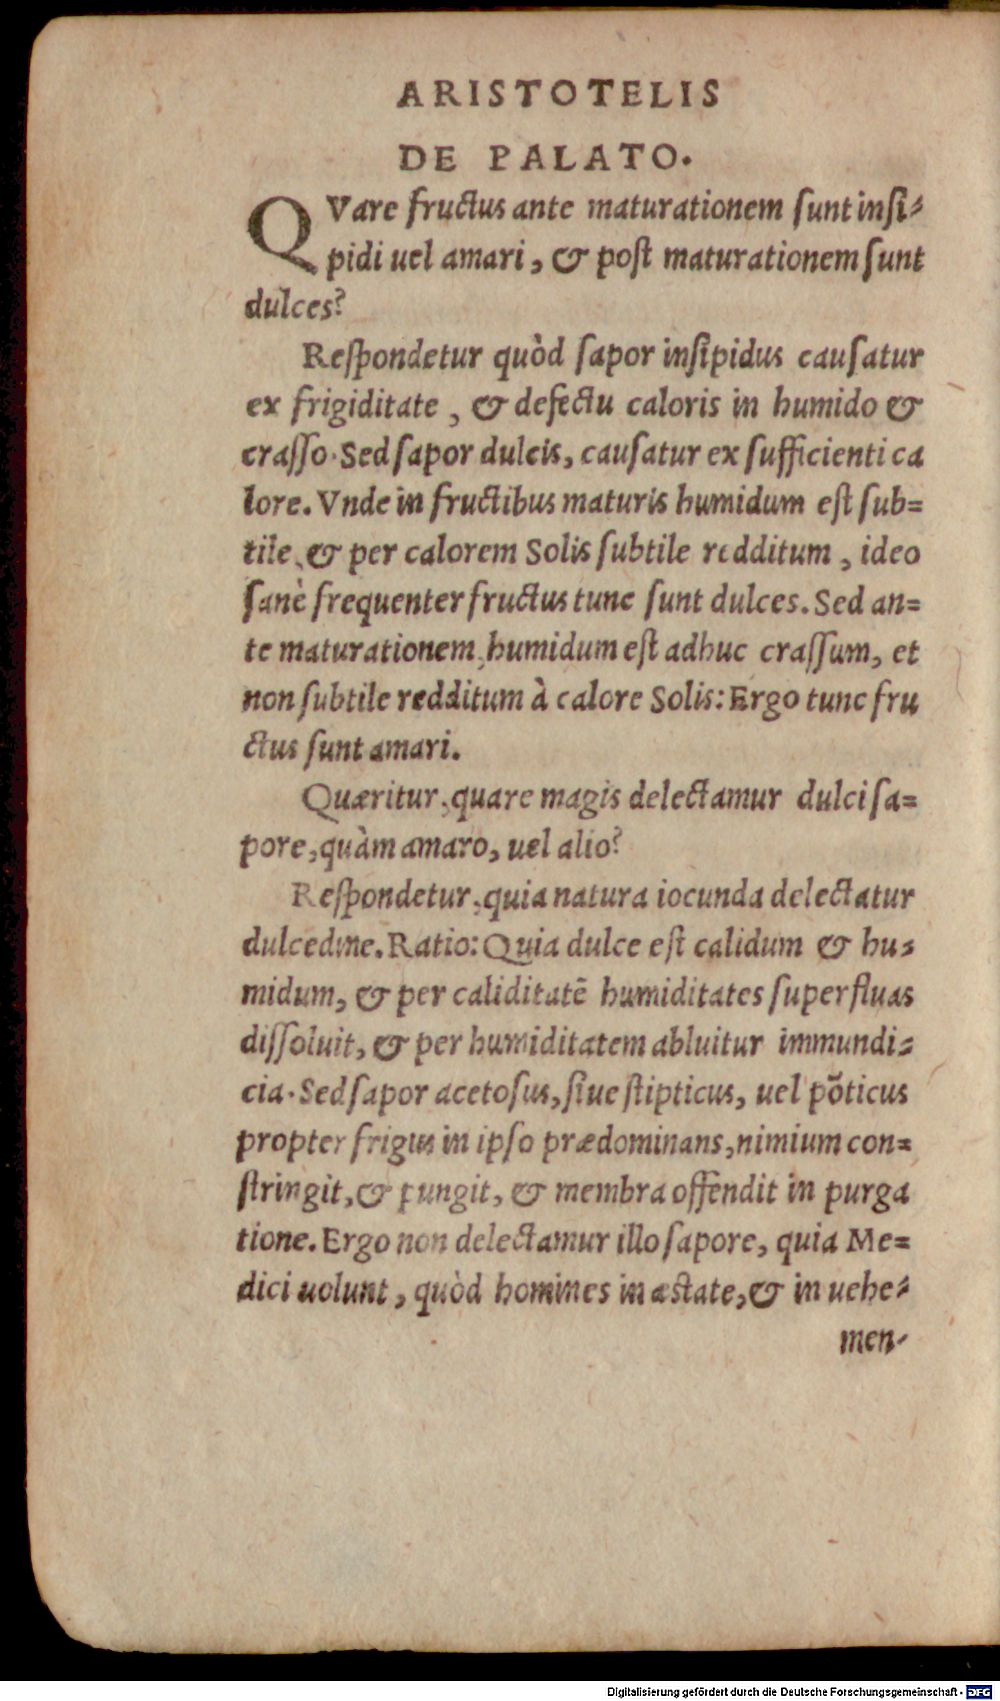 ARISTOTELIS
DE PALATO.
QVare fructus ante maturationem sunt insi-
pidi uel amari, & post maturationem sunt
dulces?
Respondetur quòd sapor insipidus causatur
ex frigiditate, & defectu caloris in humido &
crasso. Sed sapor dulcis, causatur ex sufficienti ca
lore. Vnde in fructibus maturis humidum est sub=
tile, & per calorem Solis subtile redditum, ideo
sanè frequenter fructus tunc sunt dulces. Sed an=
te maturationem, humidum est adhuc crassum, et
non subtile redditum à calore Solis: Ergo tunc fru
ctus sunt amari.
Quæritur, quare magis delectamur dulci sa=
pore, quàm amaro, uel alio?
Respondetur, quia natura iocunda delectatur
dulcedine. Ratio: Quia dulce est calidum & hu-
midum, & per caliditatē humiditates superfluas
dissoluit, & per humiditatem abluitur immundi-
cia. Sed sapor acetosus, siue stipticus, uel põticus
propter frigus in ipso prædominans, nimium con=
stringit, & pungit, & membra offendit in purga
tione. Ergo non delectamur illo sapore, quia Me=
dici uolunt, quòd homines in æstate, & in uehe-
men-
Digitalisierung gefördert durch die Deutsche Forschungsgemeinschaft - DFG